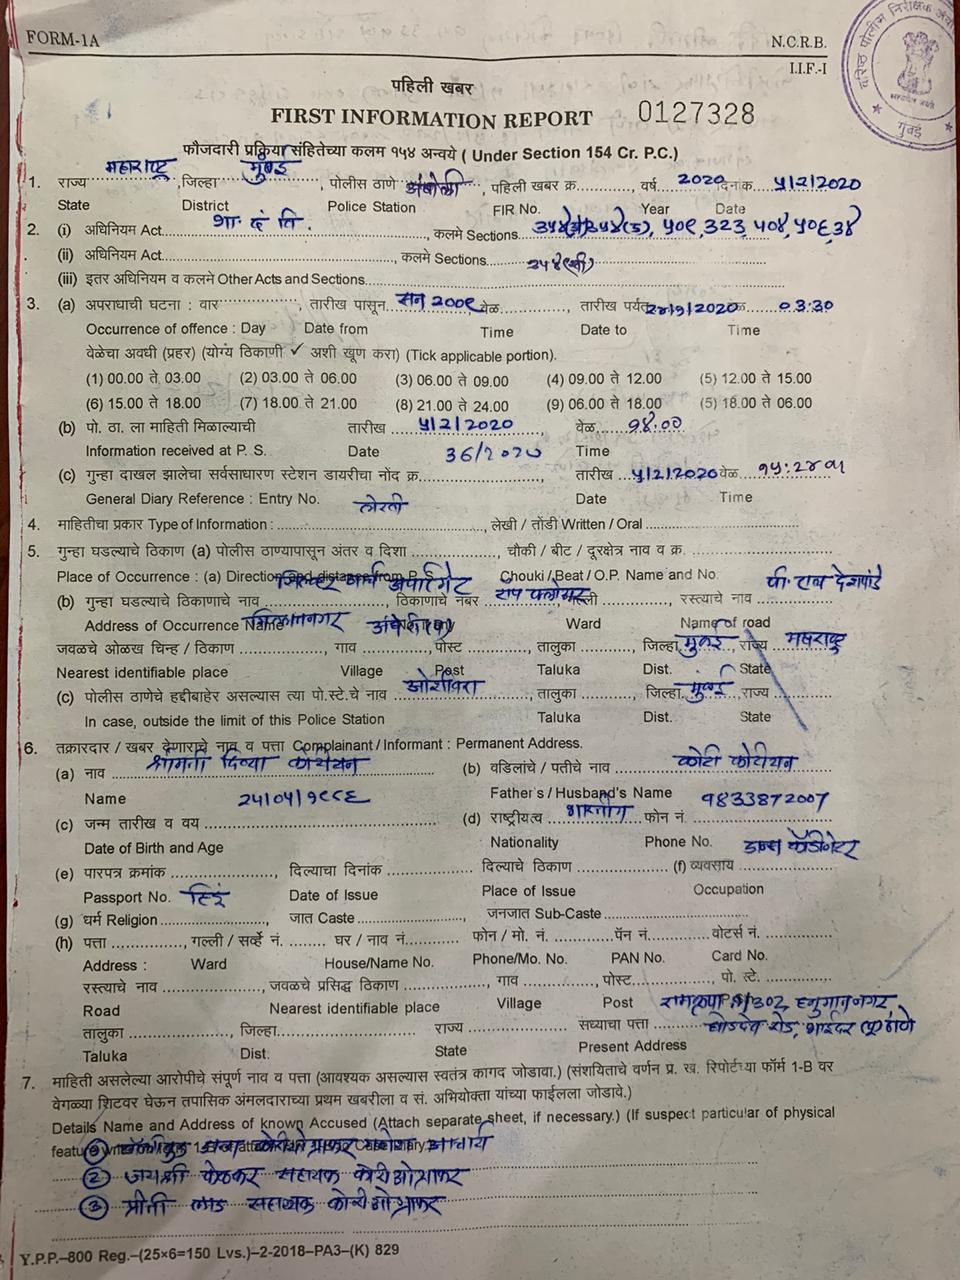 FORM-1A
N.C.R.B.
I.I.F.-I
वरिष्ठ पोलीस निरीक्षक
मुंबई
पहिली खबर
FIRST INFORMATION REPORT 0127328
फौजदारी प्रक्रिया संहितेच्या कलम १५४ अन्वये ( Under Section 154 Cr. P.C.)
महाराष्ट्र मुंबई
1. राज्य, जिल्हा, पोलीस ठाणे अंबोली, पहिली खबर क्र., वर्ष. 2020 दिनांक ५/2/2020
State District Police Station FIR No. Year Date
2. (i) अधिनियम Act भा. दं. वि., कलमे Sections
(ii) अधिनियम Act, कलमे Sections
(iii) इतर अधिनियम व कलमे Other Acts and Sections
3. (a) अपराधाची घटना : वार, तारीख पासून सन 200९ वेळ, तारीख पर्यंत 0३:३0
Occurrence of offence : Day Date from Time Date to Time
वेळेचा अवधी (प्रहर) (योग्य ठिकाणी ✓ अशी खूण करा) (Tick applicable portion).
(1) 00.00 ते 03.00 (2) 03.00 ते 06.00 (3) 06.00 ते 09.00 (4) 09.00 ते 12.00 (5) 12.00 ते 15.00
(6) 15.00 ते 18.00 (7) 18.00 ते 21.00 (8) 21.00 ते 24.00 (9) 06.00 ते 18.00 (5) 18.00 ते 06.00
(b) पो. ठा. ला माहिती मिळाल्याची तारीख ५/2/2020, वेळ १४:००
Information received at P. S. Date 36/2020 Time
(c) गुन्हा दाखल झालेचा सर्वसाधारण स्टेशन डायरीचा नोंद क्र., तारीख ५/2/2020 वेळ
General Diary Reference : Entry No. Date Time
4. माहितीचा प्रकार Type of Information : लेखी, लेखी / तोंडी Written / Oral
5. गुन्हा घडल्याचे ठिकाण (a) पोलीस ठाण्यापासून अंतर व दिशा, चौकी / बीट / दूरक्षेत्र नाव व क्र.
Place of Occurrence : (a) Direction and distance from P. S. Chouki / Beat / O.P. Name and No.
(b) गुन्हा घडल्याचे ठिकाणाचे नाव अपार्टमेंट, ठिकाणाचे नंबर, गल्ली, रस्त्याचे नाव
Address of Occurrence Name अंधेरी(प) Ward Name of road
जवळचे ओळख चिन्ह / ठिकाण, गाव, पोस्ट, तालुका, जिल्हा मुंबई, राज्य महाराष्ट्र
Nearest identifiable place Village Post Taluka Dist. State
(c) पोलीस ठाणेचे हद्दीबाहेर असल्यास त्या पो.स्टे.चे नाव ओशिवरा, तालुका, जिल्हा मुंबई, राज्य
In case, outside the limit of this Police Station Taluka Dist. State
6. तक्रारदार / खबर देणाराचे नाव व पत्ता Complainant / Informant : Permanent Address.
(a) नाव श्रीमती दिव्या कोटीयन (b) वडिलांचे / पतीचे नाव कोटी कोटीयन
Name Father's / Husband's Name
(c) जन्म तारीख व वय (d) राष्ट्रीयत्व भारतीय फोन नं. 9833872007
Date of Birth and Age Nationality Phone No.
(e) पारपत्र क्रमांक, दिल्याचा दिनांक, दिल्याचे ठिकाण (f) व्यवसाय
Passport No. Date of Issue Place of Issue Occupation
(g) धर्म Religion हिंदू, जात Caste, जनजात Sub-Caste
(h) पत्ता, गल्ली / सर्व्हे नं. घर / नाव नं. फोन / मो. नं. पॅन नं. वोटर्स नं.
Address : Ward House/Name No. Phone/Mo. No. PAN No. Card No.
रस्त्याचे नाव, जवळचे प्रसिद्ध ठिकाण, गाव, पोस्ट, पो. स्टे.
Road Nearest identifiable place Village Post हनुमाननगर,
तालुका, जिल्हा राज्य सध्याचा पत्ता रोड, भाईंदर (पू) ठाणे
Taluka Dist. State Present Address
7. माहिती असलेल्या आरोपीचे संपूर्ण नाव व पत्ता (आवश्यक असल्यास स्वतंत्र कागद जोडावा.) (संशयिताचे वर्णन प्र. ख. रिपोर्टच्या फॉर्म 1-B वर
वेगळ्या शिटवर घेऊन तपासिक अंमलदाराच्या प्रथम खबरीला व सं. अभियोक्ता यांच्या फाईलला जोडावे.)
Details Name and Address of known Accused (Attach separate sheet, if necessary.) (If suspect particular of physical
① गणेश आचार्य
② जयश्री केळकर सहायक कोरीओग्राफर
③ प्रीती लाड सहाय्यक कोरीओग्राफर
Y.P.P.–800 Reg.–(25×6=150 Lvs.)–2-2018–PA3–(K) 829